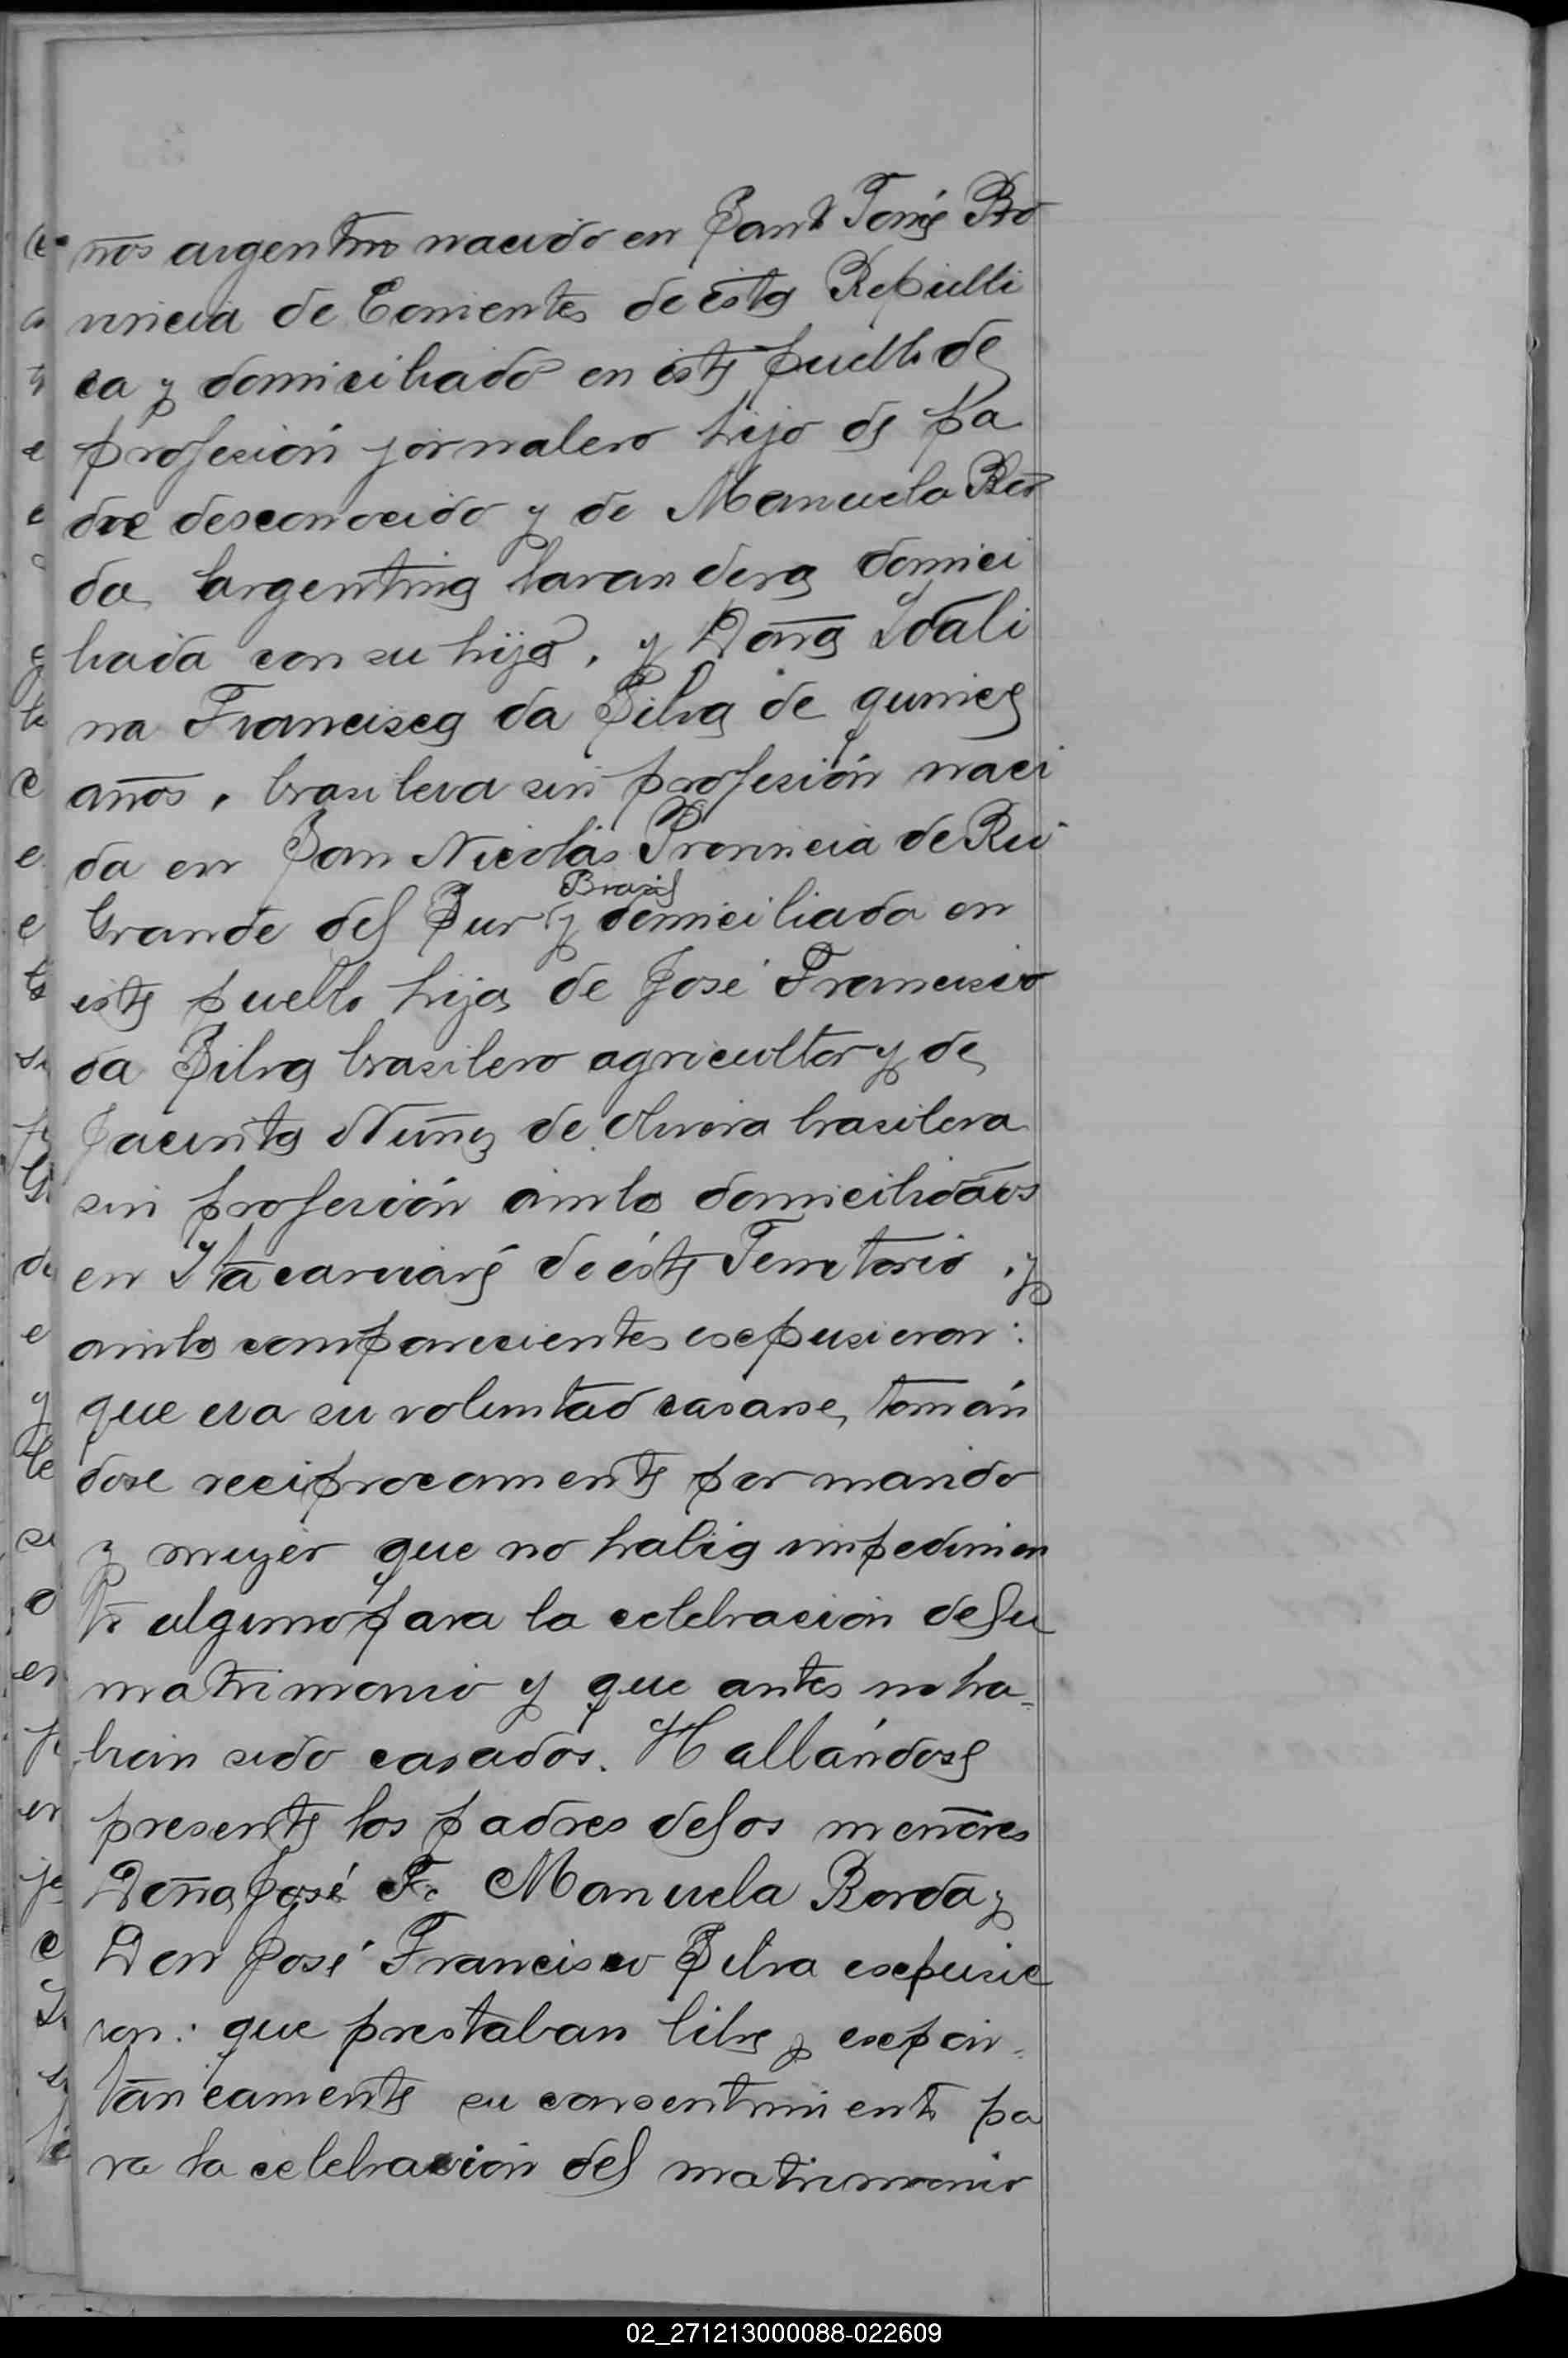 ños argentino nacido en Santo Tomé Pro
vincia de Corrientes de ésta Repúbli
ca y domiciliado en éste pueblo de
profesión jornalero hijo de pa
dre desconocido y de Manuela Bor
da argentina lavandera domici
liada con su hijo, y Doña Idali
na Francisca da Silva de quince
años, brasilera sin profesión naci
da en San Nicolás Provincia de Rio
Brasil
Grande del Sur y domiciliada en
este pueblo hija de José Francisco
da Silva brasilero agricultor y de
Jacinta Núñez de Oliveira brasilera
sin profesión ambos domiciliados
en Itacaruaré de éste Territorio, y
ambos comparecientes expusieron:
que era su voluntad casarse, tomán
dose reciprocamente por marido
y mujer que no había impedimen
to alguno para la celebración de su
matrimonio y que antes no ha-
bían sido casados. Hallándose
presente los padres de los menores
Doña José F. Manuela Borda y
Don José Francisco Silva expusie
ron: que prestaban libre y expon-
táneamente su consentimiento pa
ra la celebración del matrimonio
02_271213000088-022609